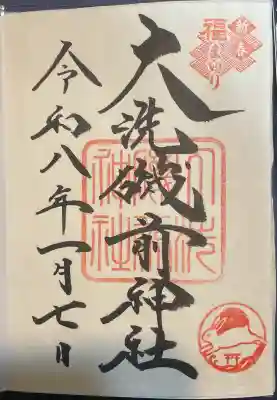 新春
福まいり
大洗磯前神社
大洗磯前神社
令和八年一月七日